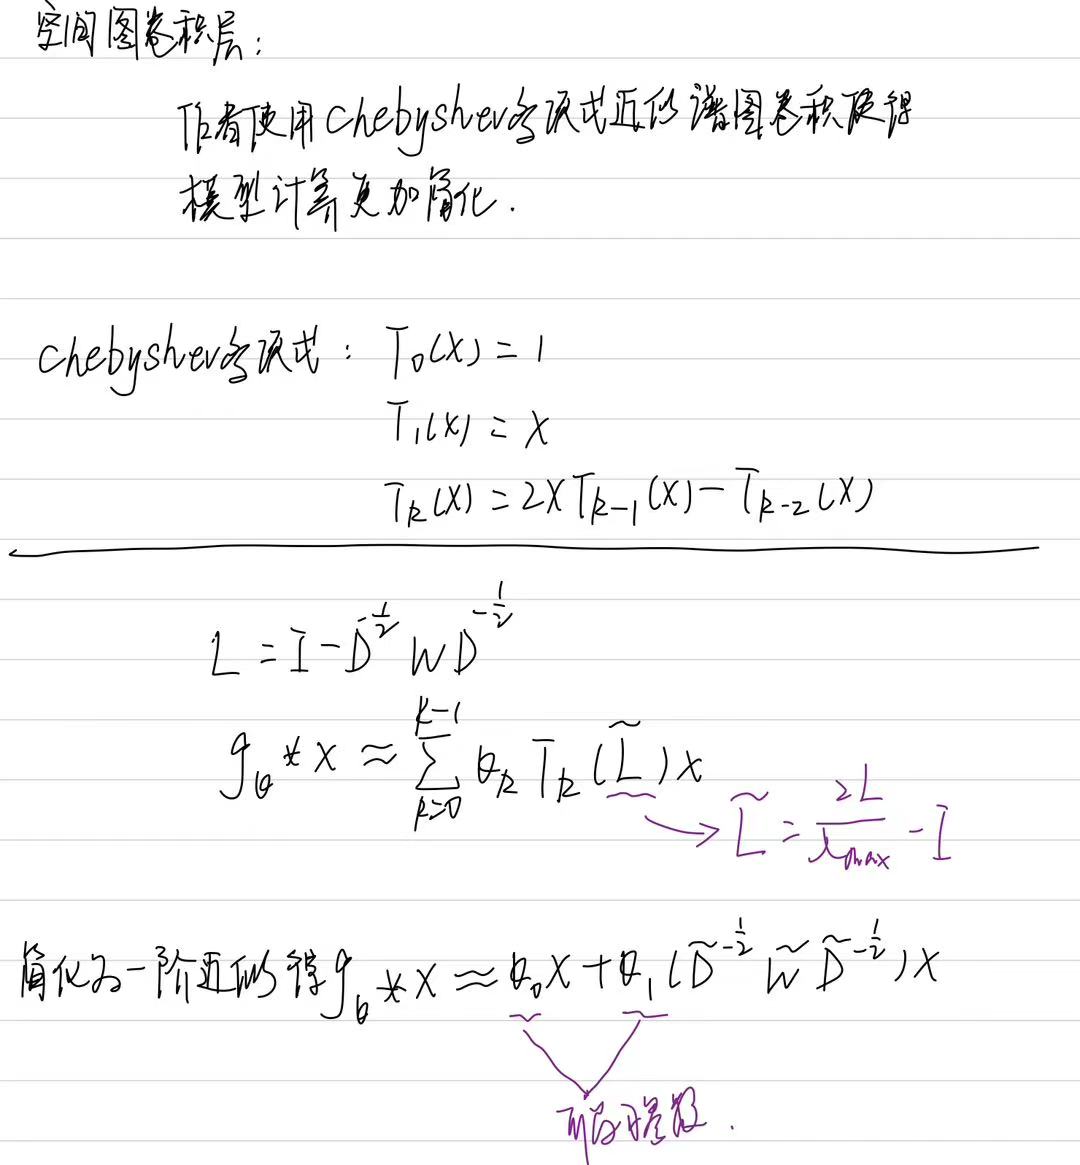 空间图卷积层:
作者使用Chebyshev多项式近似谱图卷积使得
模型计算更加简化.
Chebyshev多项式: T₀(x) = 1
T₁(x) = x
Tₖ(x) = 2xTₖ₋₁(x) - Tₖ₋₂(x)
L = I - D^{-1/2} W D^{-1/2}
g_θ * x ≈ Σ_{k=0}^{K-1} θₖ Tₖ(L̃)x
L̃ = 2L/λmax - I
简化为一阶近似得 g_θ * x ≈ θ₀x + θ₁(D̃^{-1/2} W̃ D̃^{-1/2})x
可学习参数.